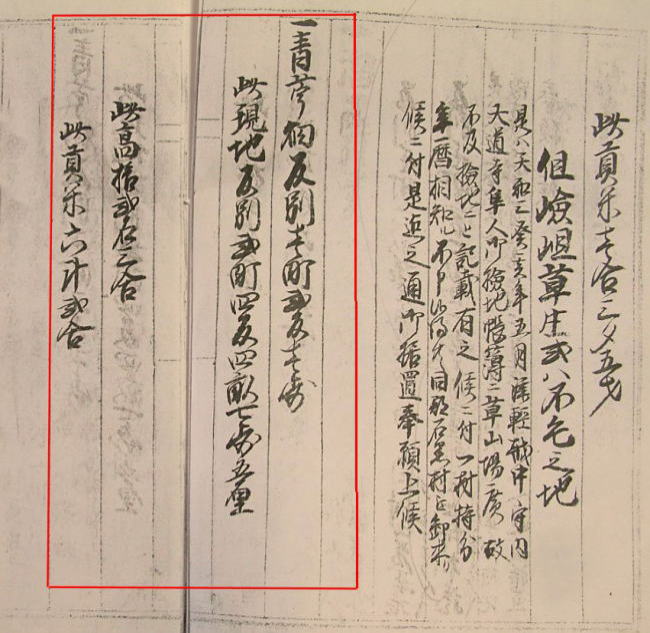 此貢米壱合三夕五才
但嶮岨草生或ハ不毛之地
是ハ天和三癸亥年五月津軽越中守内
大道寺隼人御検地帳簿ニ草山場広故
不及検地ニと記載有之候ニ付一村持分
年暦相知レ不申
候ニ付是迄之通御据置奉願上候
一青芦畑反別壱町弐反壱歩
此現地反別弐町四反四畝七歩五厘
此高拾弐石三合
此貢米六斗弐合